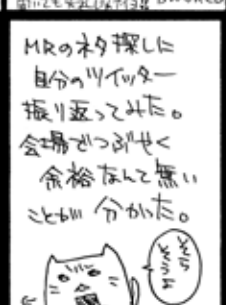 MRのネタ探しに
自分のツイッター
振り返ってみた。
会場でつぶやく
余裕なんて無い
ことが 分かった。
そら
そうよ